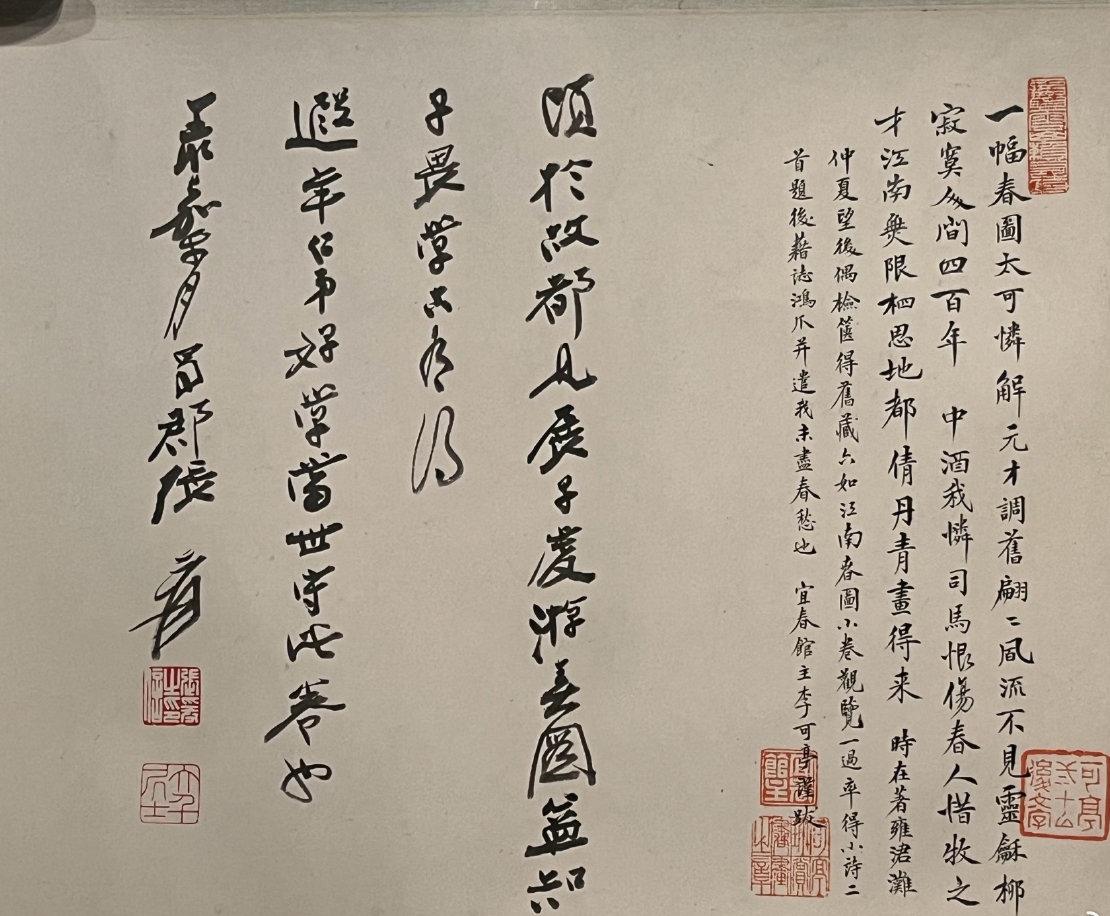 一幅春圖太可憐解元才調舊翩〻風流不見靈龢柳
寂寞人間四百年 中酒我憐司馬恨傷春人惜牧之
才江南無限相思地都倩丹青畫得來 時在著雍涒灘
仲夏望後偶檢篋得舊藏六如江南春圖小卷觀覽一過率得小詩二
首題後藉誌鴻爪并遣我未盡春愁也 宜春館主李可亭謹跋
頃於故都見展子虔游春圖益知
子畏學古有得
遐年仁弟好學當世守此卷也
嘉平月蜀郡張爰
張爰之印
大千居士